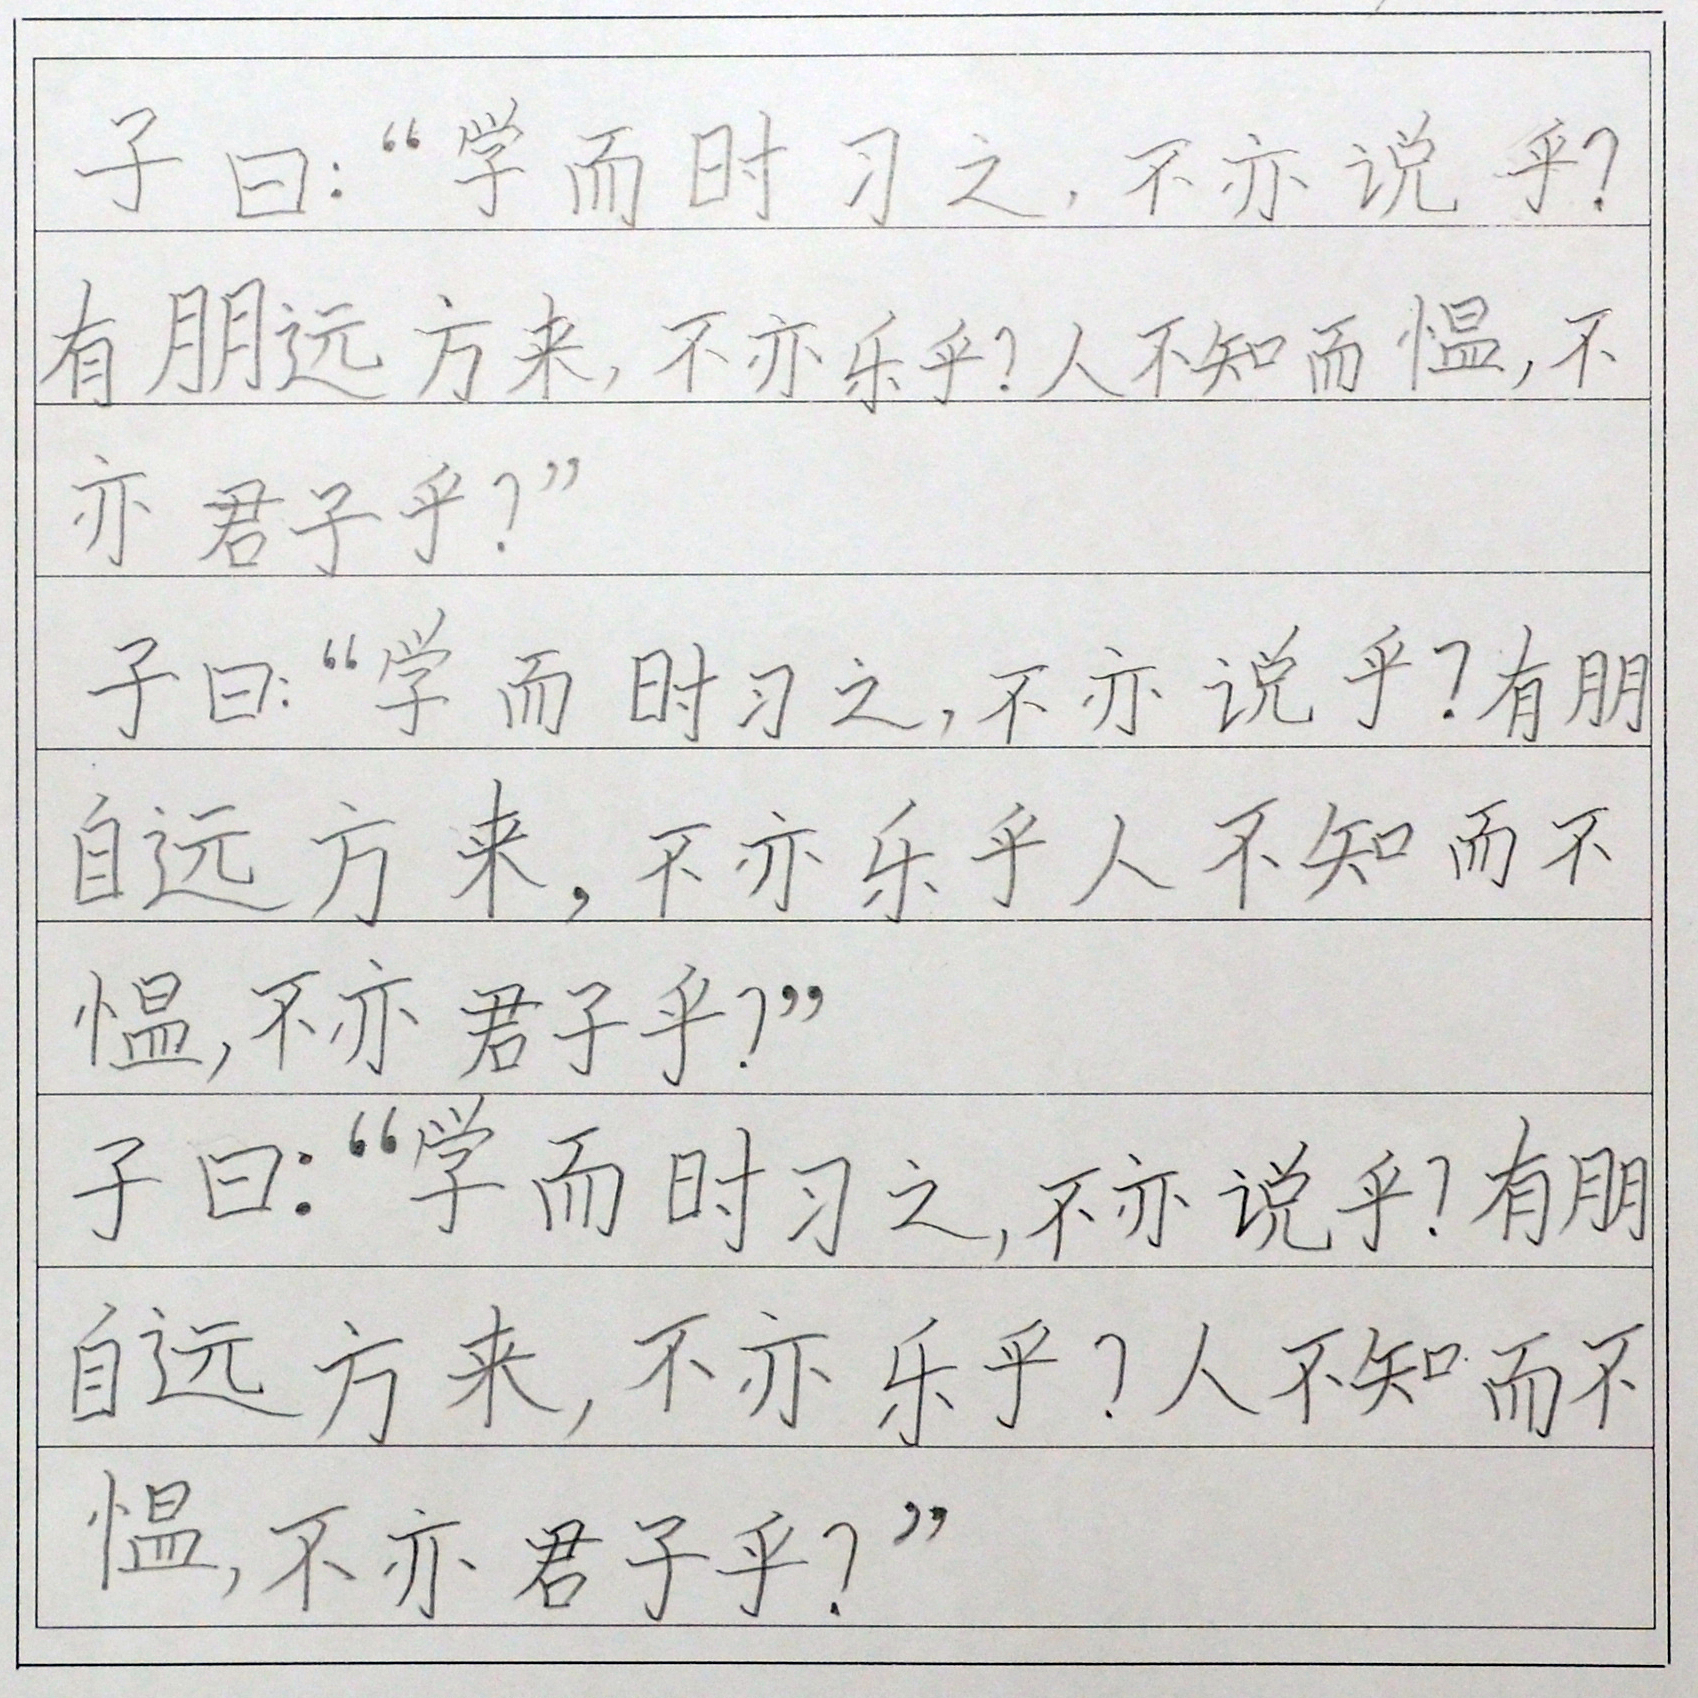 子曰：“学而时习之，不亦说乎？
有朋远方来，不亦乐乎？人不知而愠，不
亦君子乎？”
子曰：“学而时习之，不亦说乎？有朋
自远方来，不亦乐乎人不知而不
愠，不亦君子乎？”
子曰：“学而时习之，不亦说乎？有朋
自远方来，不亦乐乎？人不知而不
愠，不亦君子乎？”